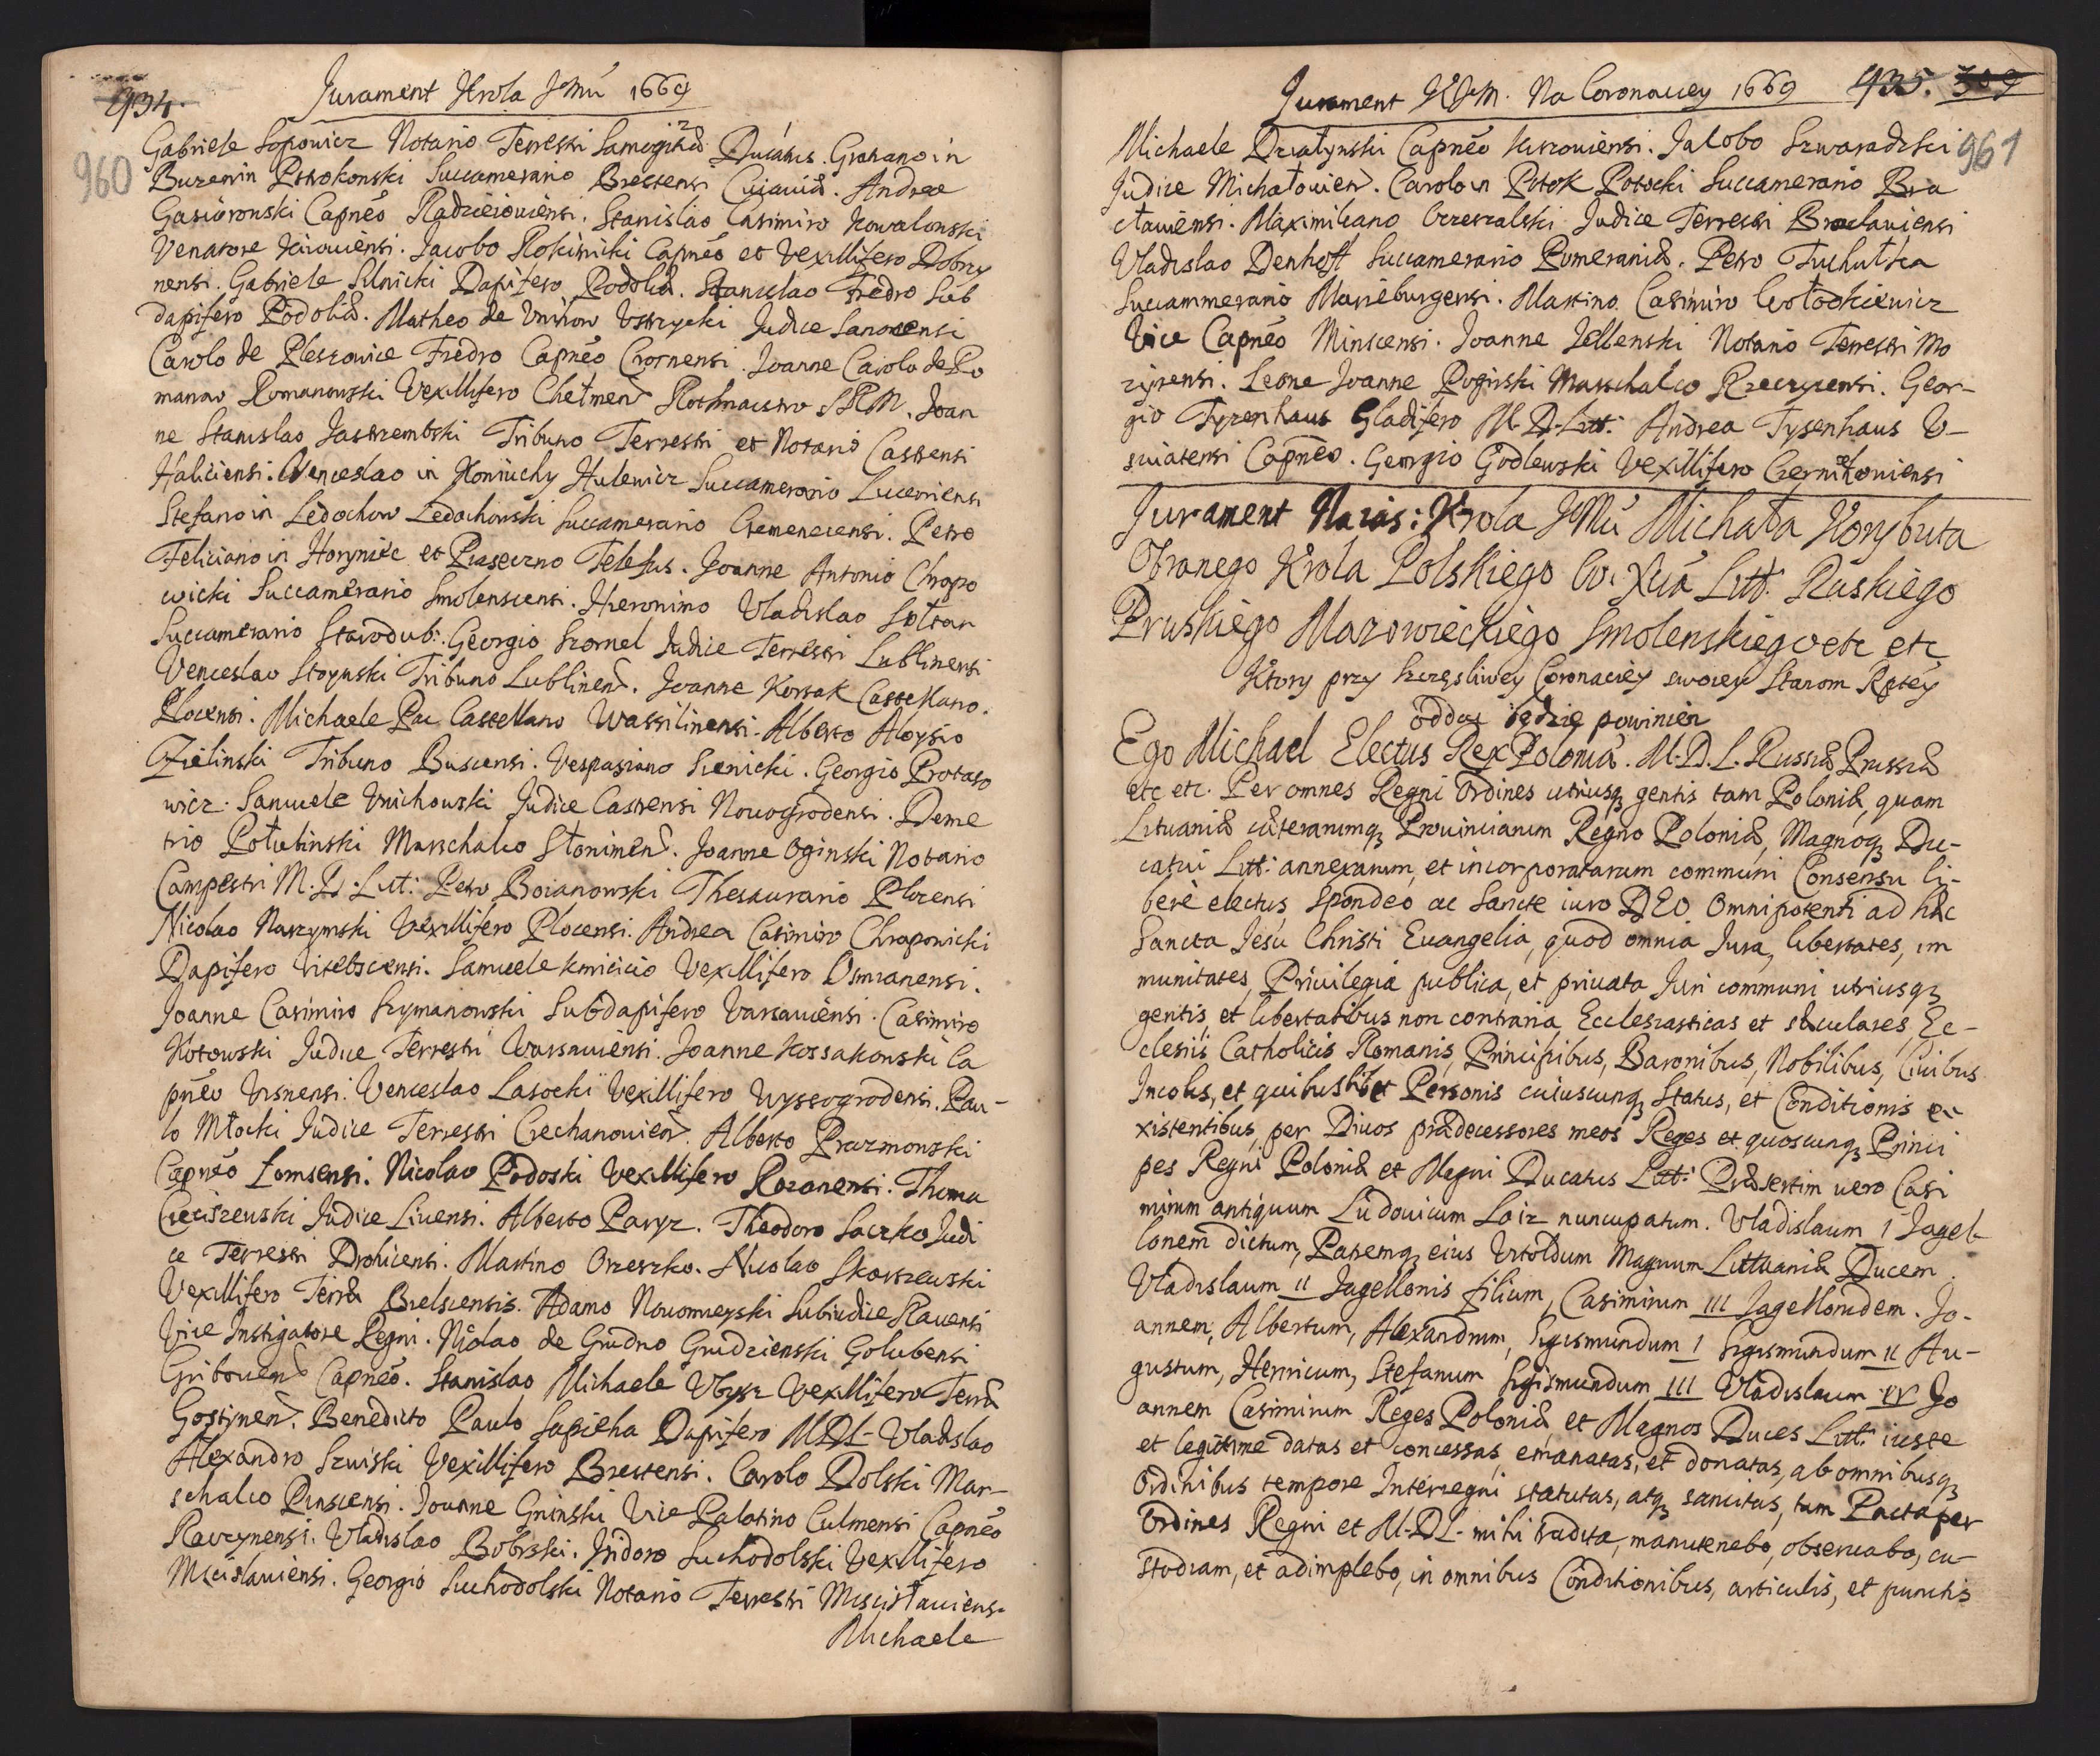 934.
Jurament Krola JMu 1669
960
Gabriele Sopowicz Notario Terrestri Samogitiæ Ducatus. Grohano in
Burzenin Pstrokonski Succamerario Brestensi Cujaviæ. Andrea
Gasioronski Capneo Radzieioviensi. Stanislao Casimiro Kowalonski
Venatore Kiioviensi. Jacobo Rokitnicki Capneo et Vexillifero Dobrzy
nensi. Gabriele Silnicki Dapifero Podoliæ. Stanislao Fredro Sub
dapifero Podoliæ. Matheo de Unihow Ustrzycki Judice Sanocensi
Carolo de Pleszowice Fredro Capneo Crosnensi. Joanne Carolo de Ro
manow Romanowski Vexillifero Chełmen Rothmaistro SRM. Joan
ne Stanislao Jastrzembski Tribuno Terrestri et Notario Castrensi
Haliciensi. Wenceslao in Koniuchy Hulewicz Succamerario Luceoriensi
Stefano in Ledochow Ledochowski Succamerario Cremenecensi. Petro
Feliciano in Horyniec et Piaseczno Telefus. Joanne Antonio Chrapo
wicki Succamerario Smolenscensi. Hieronimo Vladislao Sołtan
Succamerario Starodub: Georgio Szornel Judice Terrestri Lublinensi
Venceslao Stoynski Tribuno Lublinen. Joanne Korsak Castellano.
Plocensi. Michaele Pac Castellano Wassilinensi. Alberto Aloysio
Zielinski Tribuno Buscensi. Vespasiano Sienicki. Georgio Protaso
wicz. Samuele Unichowski Judice Castrensi Novogrodensi. Deme
trio Połubinski Marschalco Słonimen. Joanne Oginski Notario
Campestri M.D. Litt: Petro Boianowski Thesaurario Plocensi
Nicolao Naszymski Vexillifero Plocensi. Andrea Casimiro Chraponicki
Dapifero Vitebscensi. Samuele Kmicicio Vexillifero Osmianensi.
Joanne Casimiro Szymanowski Subdapifero Varsaviensi. Casimiro
Kotowski Judice Terrestri Warsaviensi. Joanne Kossakowski Ca
pneo Visnensi. Venceslao Lasocki Vexillifero Wyssogrodensi. Pau-
lo Młocki Judice Terrestri Ciechanovien. Alberto Prazmowski
Capneo Lomsensi. Nicolao Podoski Vexillifero Rozanensi. Thoma
Cieciszewski Judice Livensi. Alberto Parys. Theodoro Laczko Judi
ce Terrestri Drohicensi. Martino Orzeszko. Nicolao Skorszewski
Vexillifero Terræ Bielscensis. Adamo Nowomieyski Subiudice Ravensi
Vice Instigatore Regni. Nicolao de Grudno Grudzienski Golubensi
Gribovien Capneo. Stanislao Michaele Ubysz Vexillifero Terræ
Gostynen. Benedicto Paulo Sapieha Dapifero MDL. Vladislao
Alexandro Szuiski Vexillifero Brestensi. Carolo Dolski Mar-
schalco Pinscensi. Joanne Gninski Vice Palatino Culmensi Capneo
Raczynensi. Vladislao Bobrski. Isidoro Suchodolski Vexillifero
Mscislaviensi. Georgio Suchodolski Notario Terrestri Mscisłaviens.
Michaele
Jurament KJM. Na Coronacyey 1669
935. 309
961
Michaele Działynski Capneo Kiszoviensi. Jacobo Szwaradzki
Judice Michałovien. Carolo in Potok Potocki Succamerario Bra
cłaviensi. Maximiliano Czeszalski Judice Terrestri Braclaviensi
Vladislao Denhoff Succamerario Pomeraniæ. Petro Tuchułka
Succammerario Marieburgensi. Martino Casimiro Wołodkiewicz
Vice Capneo Minscensi. Joanne Jellenski Notario Terrestri Mo
zyrensi. Leone Joanne Poginski Marschalco Rzeczycensi. Geor-
gio Tyzenhaus Gladifero M. D. Litt: Andrea Tysenhaus U-
swiatensi Capneo. Georgio Godlewski Vexillifero Czerniechoviensi
Jurament Naias: Krola JMu Michała Korybuta
Obranego Krola Polskiego W. Xcia Litt: Ruskiego
Pruskiego Mazowieckiego Smolenskiego etc etc
Ktory przy szczęsliwey Coronaciey swoiey Stanom Rptey
oddac będzie powinien
Ego Michael Electus Rex Poloniæ. M. D. L. Russiæ Prussiæ
etc etc. Per omnes Regni Ordines utriusq gentis tam Poloniæ, quam
Lituaniæ cæterarumq Provinciarum Regno Poloniæ, Magnoq Du-
catui Litt: annexarum, et incorporatarum communi Consensu li-
berè electus, Spondeo ac Sancte iuro DEO Omnipotenti ad hæc
Sancta Jesu Christi Euangelia, quod omnia Jura, libertates, im
munitates, Privilegia publica, et privata Juri communi utriusq
gentis, et libertatibus non contraria, Ecclesiasticas et sæculares, Ec-
clesiis Catholicis Romanis, Principibus, Baronibus, Nobilibus, Civibus
Incolis, et quibuslibet Personis cuiuscunq Status, et Conditionis e-
xistentibus, per Divos prædecessores meos Reges et quoscunq Princi
pes Regni Poloniæ et Magni Ducatus Litt: Præsertim vero Casi
mirum antiquum Ludovicum Loiz nuncupatum. Vladislaum I Jagel-
lonem dictum, Patremq eius Vitoldum Magnum Littuaniæ Ducem.
Vladislaum II Jagellonis filium, Casimirum III Jagellonidem. Jo-
annem, Albertum, Alexandrum, Sigismundum I Sigismundum II Au-
gustum, Henricum, Stefanum Sigismundum III Vladislaum IV Jo
annem Casimirum Reges Poloniæ, et Magnos Duces Litt: iuste
et legitime datas et concessas, emanatas, et donatas, ab omnibusq
Ordinibus tempore Interregni statutas, atq sancitas, tum Pacta per
Ordines Regni et M.DL. mihi tradita, manutenebo, observabo, cu-
stodiam, et adimplebo, in omnibus Conditionibus, articulis, et punctis